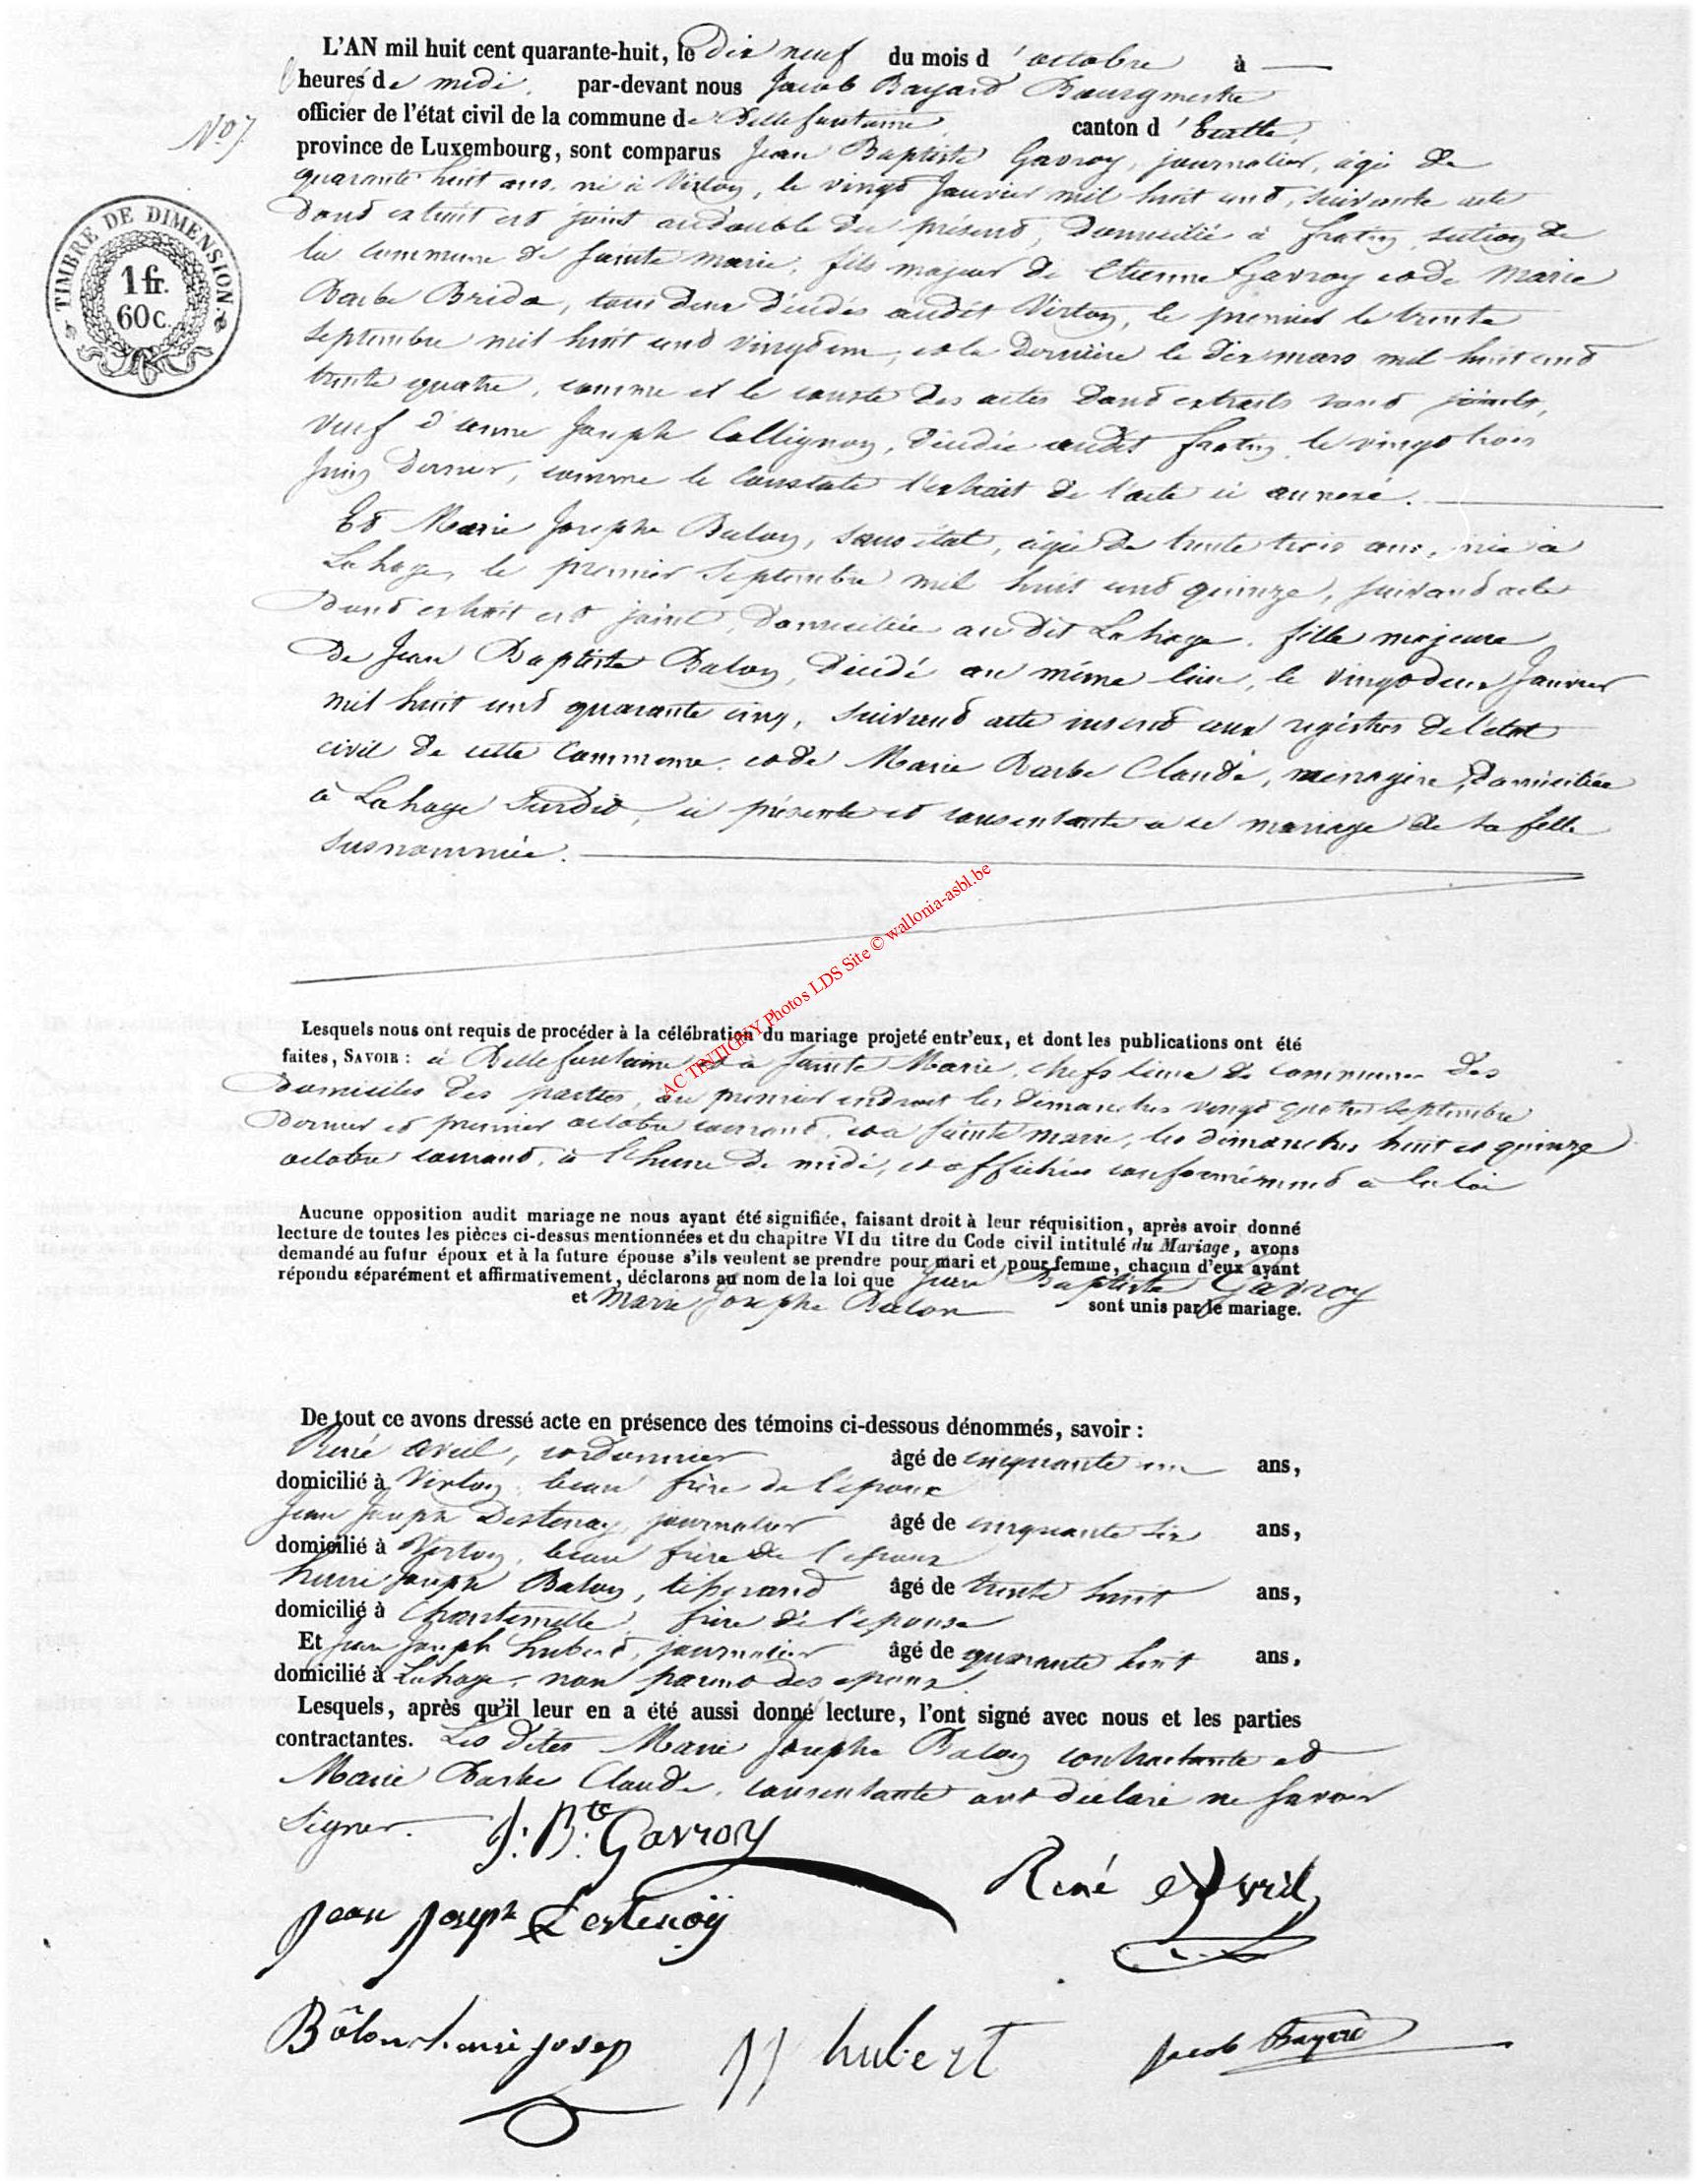 L'AN mil huit cent quarante-huit, le dix neuf du mois d'octobre à —
heures de midi. par-devant nous Jacob Bayard Bourgmestre
officier de l'état civil de la commune de Bellefontaine, canton d'Etalle,
No 7.
province de Luxembourg, sont comparus Jean Baptiste Gavroy, journalier, âgé de
quarante huit ans, né à Virton, le vingt Janvier mil huit cent, suivant acte
dont extrait est joint au double du présent, domicilié à fratin, section de
la commune de Sainte marie, fils majeur de Etienne Gavroy et de Marie
Barbe Brida, tous deux décédés audit Virton, le premier le trente
Septembre mil huit cent vingt un, et la dernière le dix mars mil huit cent
trente quatre, comme et le conste des actes dont extraits sont joints,
veuf d'anne Joseph Collignon, décédée audit fratin, le vingt trois
Juin dernier, comme le Constate l'extrait de l'acte ci annexé.
Et Marie Josephe Balon, sans état, âgée de trente trois ans, née à
Lahage, le premier Septembre mil huit cent quinze, suivant acte
dont extrait est joint, domiciliée au dit Lahage, fille majeure
de Jean Baptiste Balon, décédé au même lieu, le vingt deux Janvier
mil huit cent quarante cinq, suivant acte inscrit aux registres de l'état
civil de cette Commune. et de Marie Barbe Claude, ménagère, domiciliée
à Lahage Surdit, ci présente et consentante à ce mariage de sa fille
susnommée.
TIMBRE DE DIMENSION.
1 fr.
60 c.
AC TINTIGNY Photos LDS Site © wallonia-asbl.be
Lesquels nous ont requis de procéder à la célébration du mariage projeté entr'eux, et dont les publications ont été
faites, SAVOIR : à Bellefontaine et à Sainte Marie, chefs lieux de communes des
domiciles des parties, au premier endroit les dimanches vingt quatre Septembre
dernier et premier octobre courant, et à Sainte marie, les dimanches huit et quinze
octobre courant, à l'heure de midi, et affichées conformément à la loi
Aucune opposition audit mariage ne nous ayant été signifiée, faisant droit à leur réquisition, après avoir donné
lecture de toutes les pièces ci-dessus mentionnées et du chapitre VI du titre du Code civil intitulé du Mariage, avons
demandé au futur époux et à la future épouse s'ils veulent se prendre pour mari et pour femme, chacun d'eux ayant
répondu séparément et affirmativement, déclarons au nom de la loi que Jean Baptiste Gavroy
et Marie Josephe Balon sont unis par le mariage.
De tout ce avons dressé acte en présence des témoins ci-dessous dénommés, savoir :
René avril, cordonnier âgé de cinquante un ans,
domicilié à Virton, beau frère de l'époux
Jean Joseph Destenay, journalier âgé de cinquante six ans,
domicilié à Virton, beau frère de l'époux
henri Joseph Balon, tisserand âgé de trente huit ans,
domicilié à Chantemelle, frère de l'épouse
Et Jean Joseph hubert, journalier âgé de quarante huit ans,
domicilié à Lahage, non parent des époux
Lesquels, après qu'il leur en a été aussi donné lecture, l'ont signé avec nous et les parties
contractantes. Les dites Marie Josephe Balon contractante et
Marie Barbe Claude, consentante ont déclaré ne savoir
signer.
J: Bte: Gavroy
René Avril
jean joseph Lestenoÿ
Bôlon henri josep
JJ hubert
Jacob Bayard